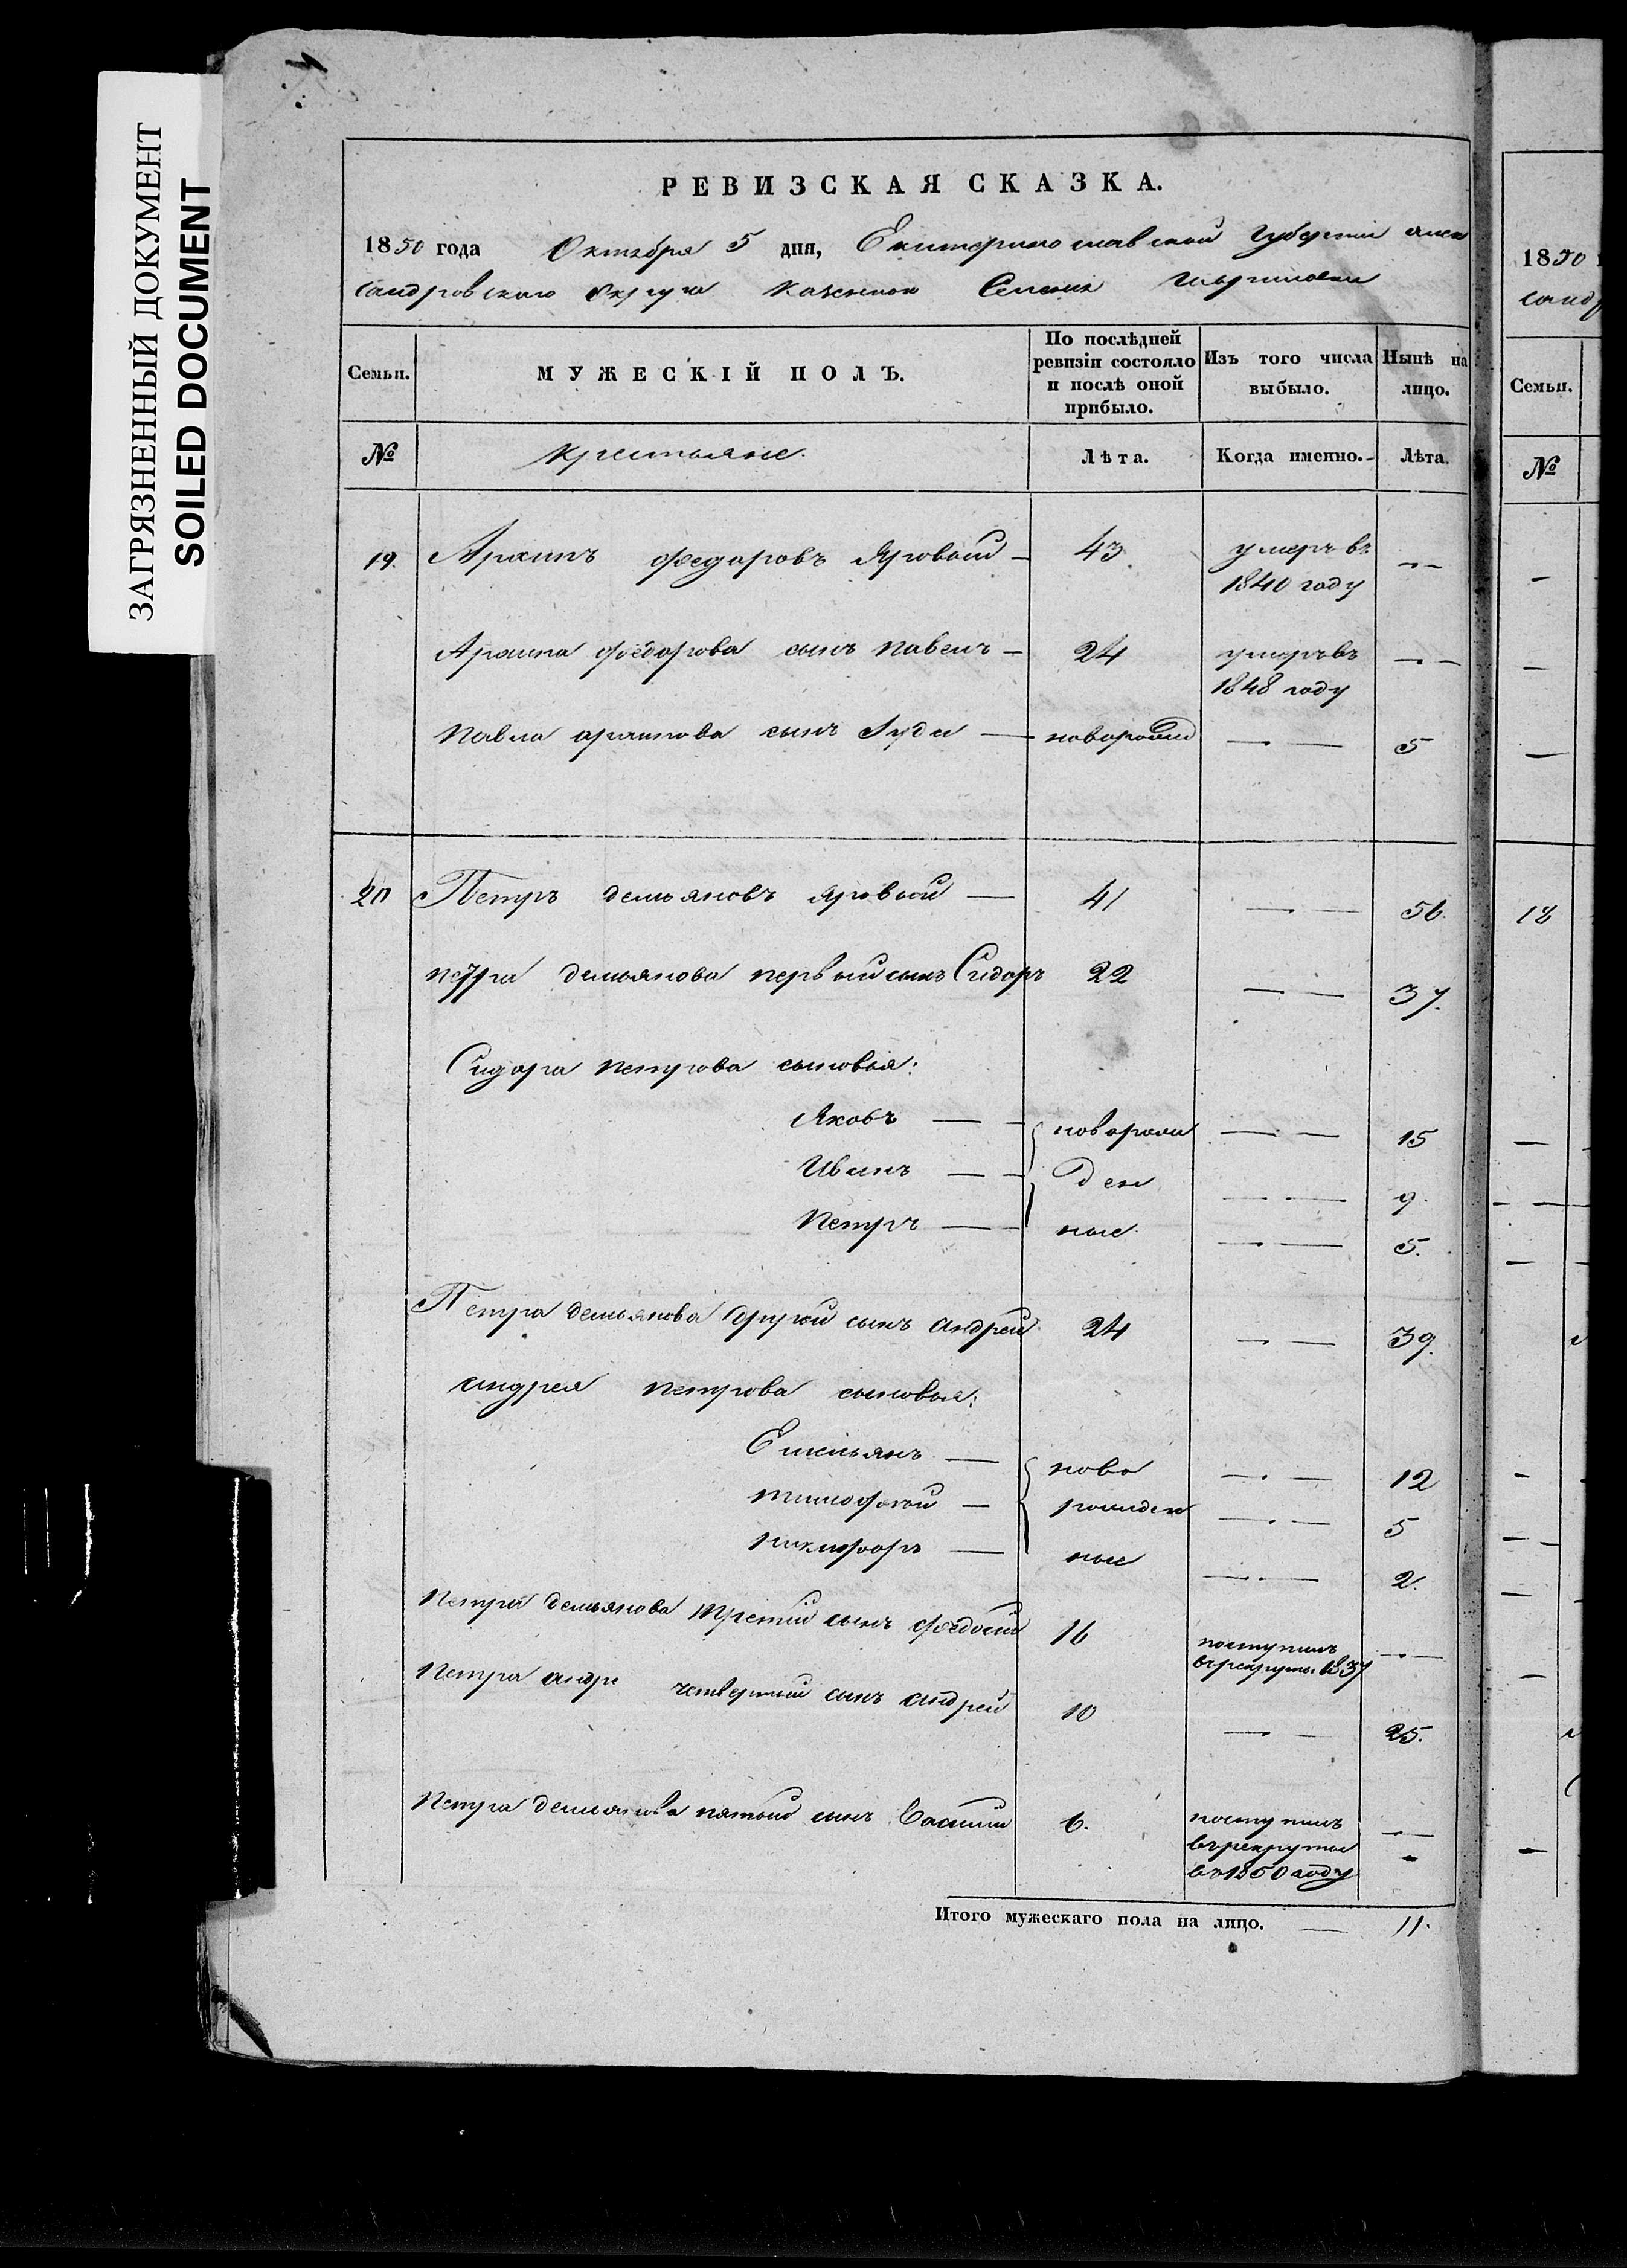 ЗАГРЯЗНЕННЫЙ ДОКУМЕНТ
SOILED DOCUMENT
РЕВИЗСКАЯ СКАЗКА.
1850 года Октября 5 дня, Екатеринославской Губернiи Алек
сандровского Округа Казенной Селенiя
Семьи. МУЖЕСКIЙ ПОЛЪ. По послѣдней ревизiи состояло и послѣ оной прибыло. Изъ того числа выбыло. Нынѣ на лицо.
№ Крестьяне. Лѣта. Когда именно. Лѣта.
19. Архипъ Федоровъ Яровый — 43. умеръ въ 1840 году — —
Архипа Федорова сынъ Павелъ — 24 умеръ въ 1848 году — —
Павла Архипова сынъ — новорожд — — 5
20 Петръ Демьяновъ Яровый — 41 — — 56.
Петра Демьянова первый сынъ Сидоръ 22 — — 37.
Сидора Петрова сыновья:
Яковъ — — новорож — — 15
Иванъ — — ден — — 9.
Петръ — — ные — — 5.
Петра Демьянова другой сынъ Андрей 24 — — 39.
Андрея Петрова сыновья:
Емельянъ — ново — — 12
Тимофей — рожден — — 5
Никифоръ — ные — — 2.
Петра Демьянова третiй сынъ Федосiй 16 поступилъ въ рекруты 1837 — —
Петра Андре четвертый сынъ Андрей 10 — — 25.
Петра Демьянова пятый сынъ Василiй 6. поступилъ въ рекруты въ 1850 году — —
Итого мужескаго пола на лицо. — 11.
1850
санд
Семьи.
№
18